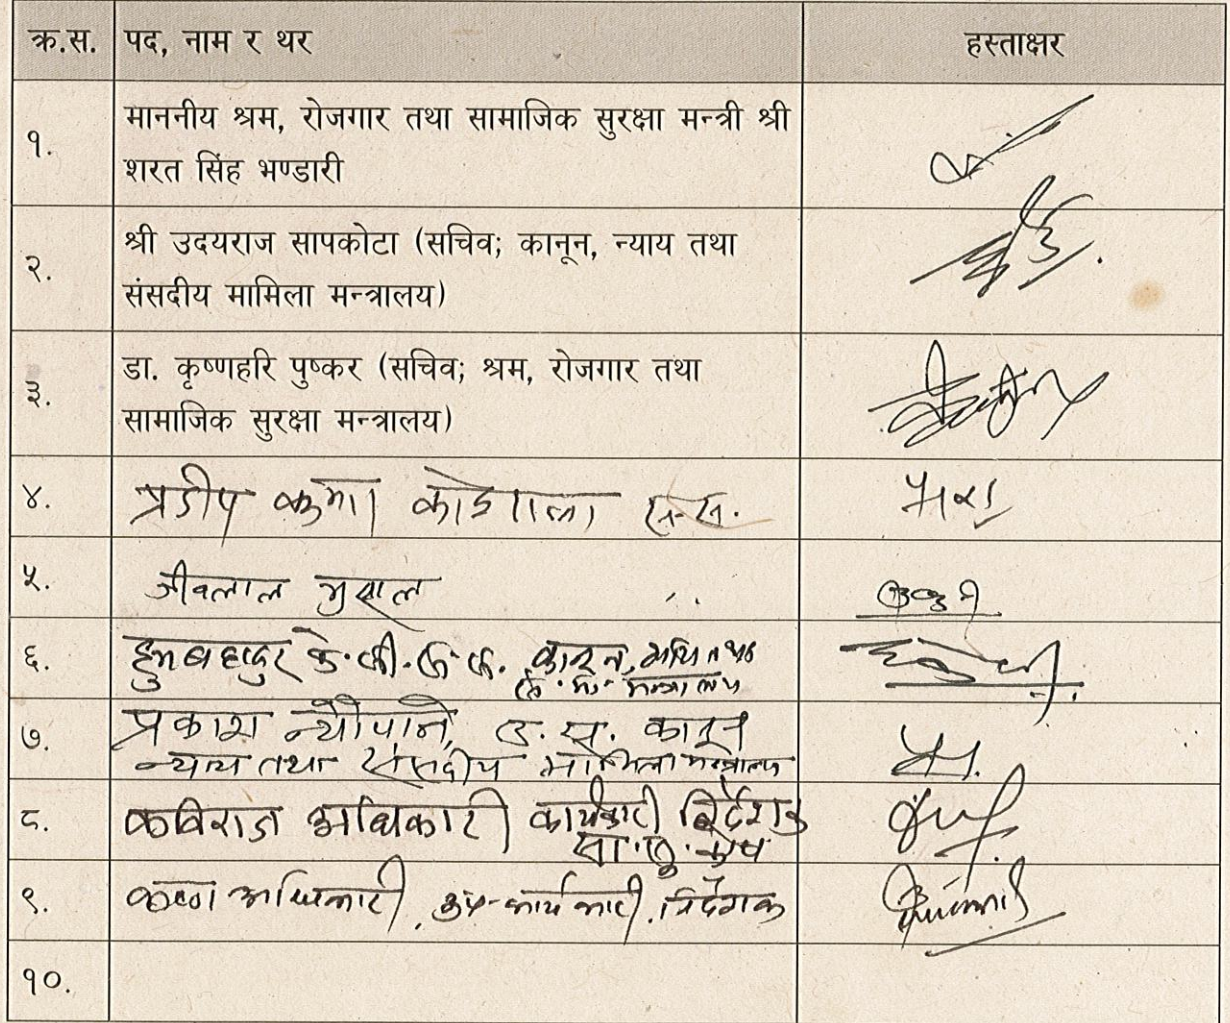 क्र.स. पद, नाम र थर हस्ताक्षर
१. माननीय श्रम, रोजगार तथा सामाजिक सुरक्षा मन्त्री श्री
शरत सिंह भण्डारी
२. श्री उदयराज सापकोटा (सचिव; कानून, न्याय तथा
संसदीय मामिला मन्त्रालय)
३. डा. कृष्णहरि पुष्कर (सचिव; श्रम, रोजगार तथा
सामाजिक सुरक्षा मन्त्रालय)
४. प्रदीप कुमार कोइराला स.स.
५. जीवलाल भुसाल
६. हुमबहादुर के.सी. उ.स. कानून, न्याय तथा
सं. मा. मन्त्रालय
७. प्रकाश न्यौपाने, उ.स. कानून
न्याय तथा संसदीय मामिला मन्त्रालय
८. कविराज अधिकारी कार्यकारी निर्देशक
सा.सु.कोष
९. अधिकारी, उप-कार्यकारी निर्देशक
१०.